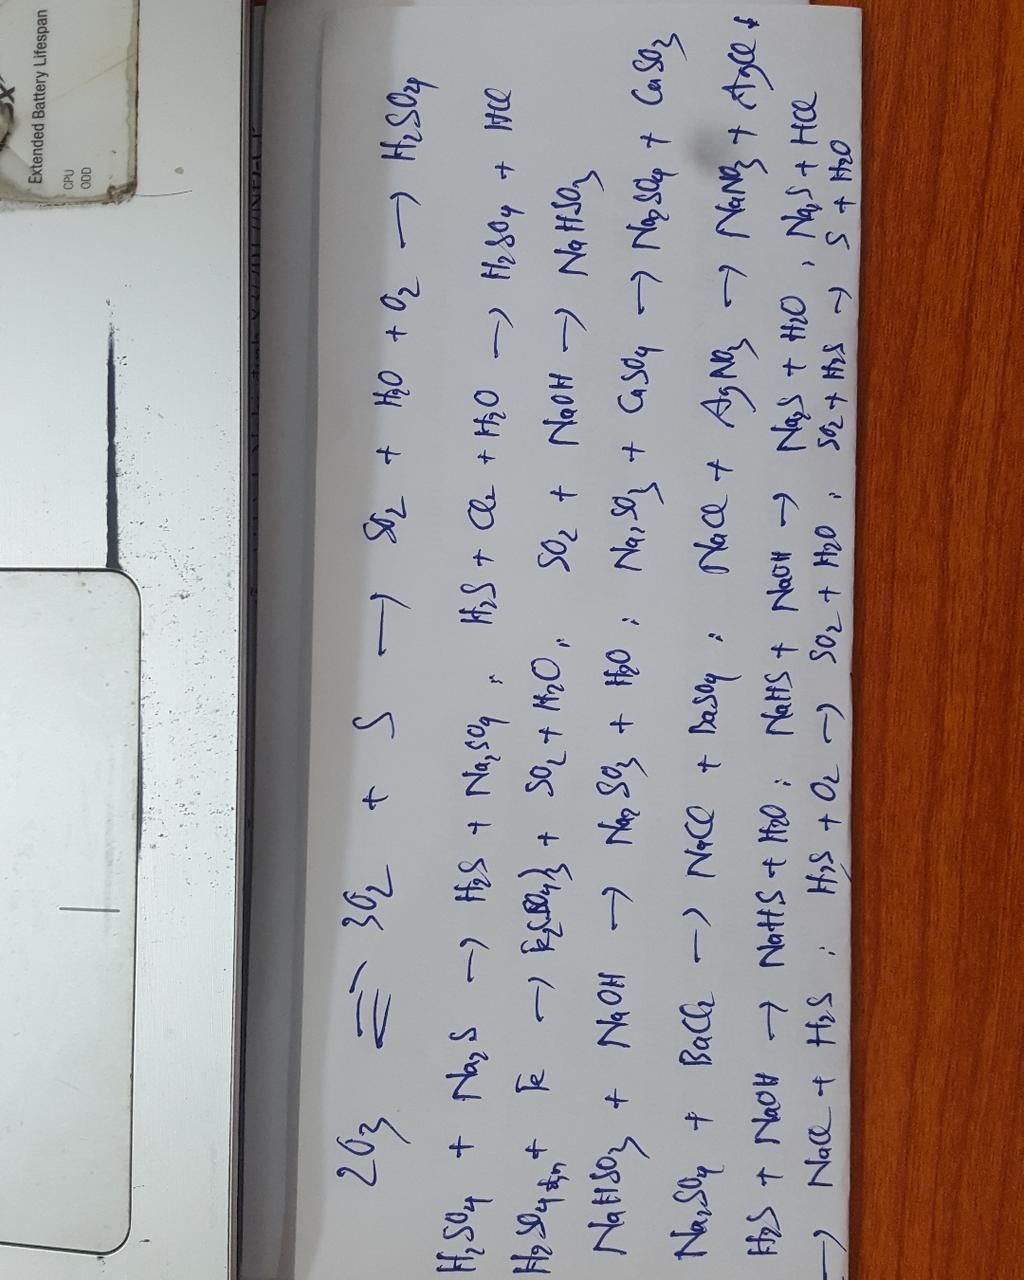 Extended Battery Lifespan
CPU
ODD
2O3 ⇌ 3O2 + S → SO2 + H2O + O2 → H2SO4
H2SO4 + Na2S → H2S + Na2SO4 ; H2S + Cl2 + H2O → H2SO4 + HCl
H2SO4 đ,n + Fe → Fe2(SO4)3 + SO2 + H2O ; SO2 + NaOH → NaHSO3
NaHSO3 + NaOH → Na2SO3 + H2O ; Na2SO3 + CaSO4 → Na2SO4 + CaSO3
Na2SO4 + BaCl2 → NaCl + BaSO4 ; NaCl + AgNO3 → NaNO3 + AgCl ↓
H2S + NaOH → NaHS + H2O ; NaHS + NaOH → Na2S + H2O ; Na2S + HCl
→ NaCl + H2S ; H2S + O2 → SO2 + H2O ; SO2 + H2S → S + H2O